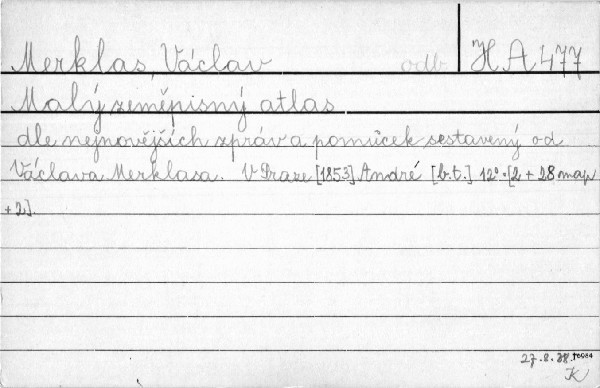 Merklas, Václav odb. H A 477
Malý zeměpisný atlas
dle nejnovějších zpráv a pomůcek sestavený od
Václava Merklasa. V Praze [1853] André [b.t.] 12° [2 + 28 map
+ 2].
27.8.
K